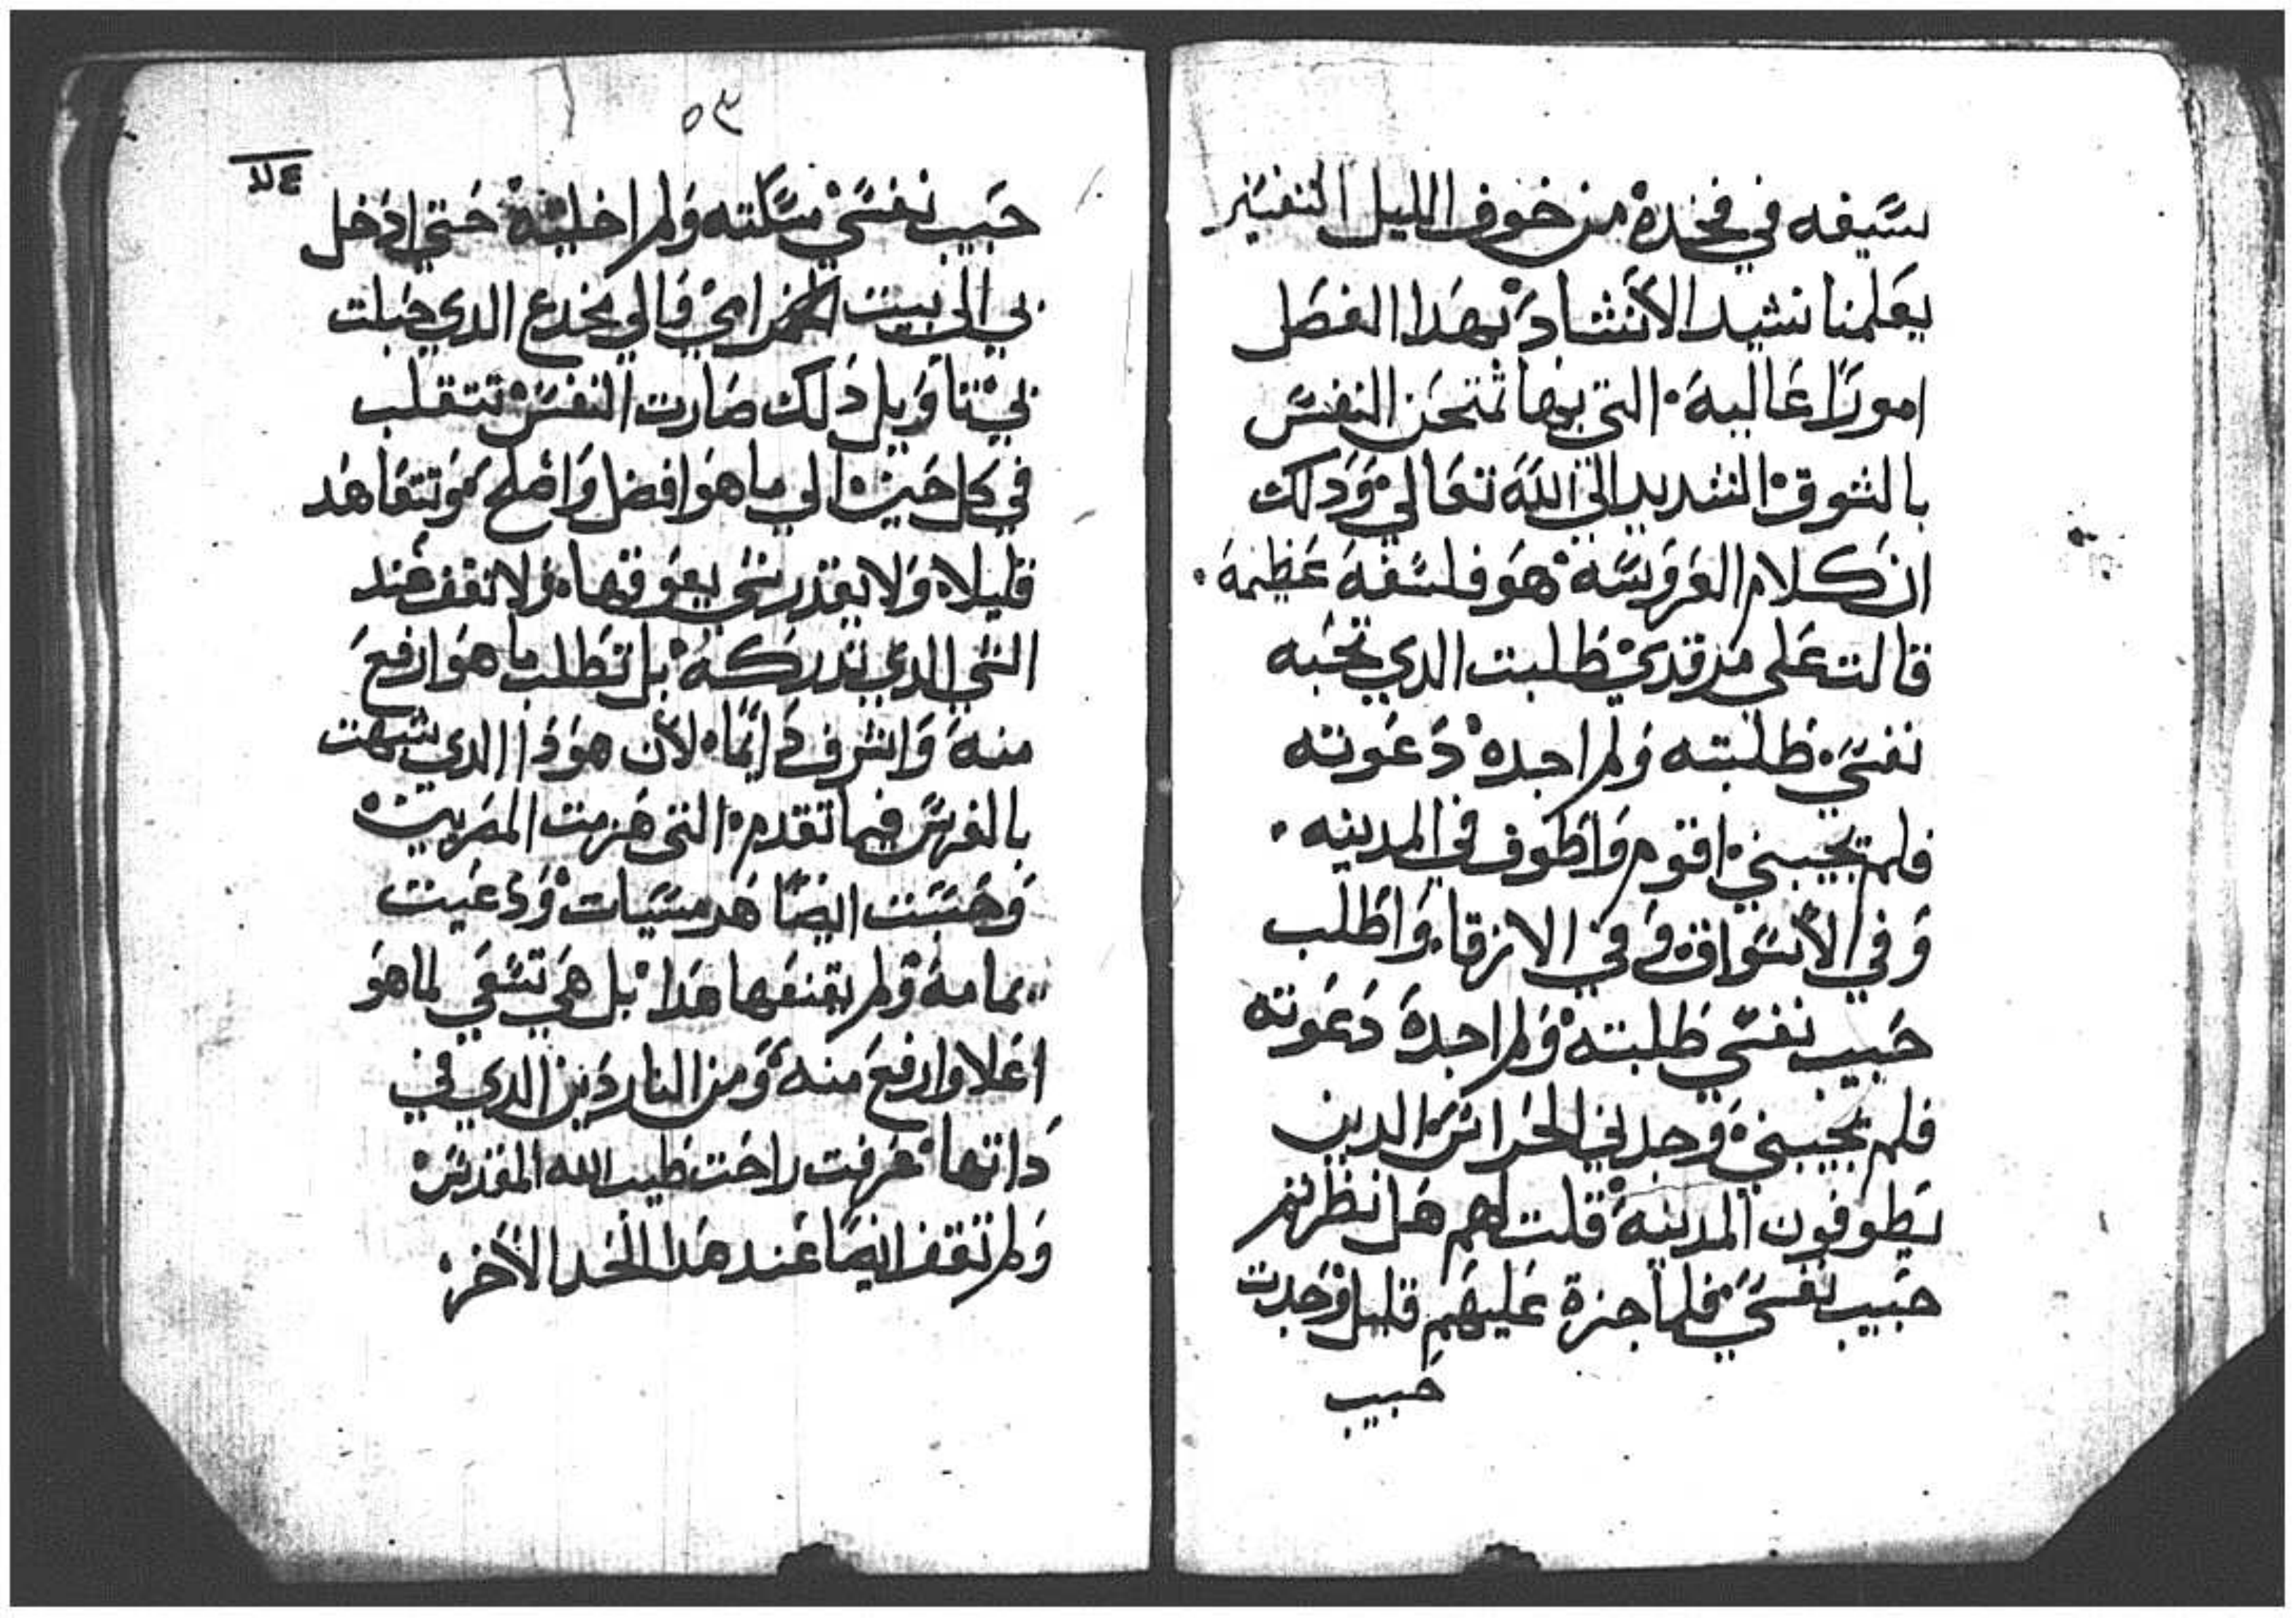 سيفه في فخده من خوف الليل التفسير
يعلمنا نشيد الأنشاد بهدا الفصل
امورًا عالية التي بها تمتحن النفس
بالشوق الشديد الي الله تعالي ودلك
ان كلام العروسة هو فلسفة عظيمة
قالت علي مرقدي طلبت الدي تحبه
نفسي طلبته ولم اجده دعوته
فلم يجيبني اقوم واطوف في المدينه
وفي الأسواق وفي الازقا واطلب
حبيب نفسي طلبته ولم اجده دعوته
فلم يجيبني وجدني الحراس الدين
يطوفون المدينة قلت لهم هل نظرتم
حبيب نفسي فلما جزة عليهم قليل وجدت
حبيب
٥٣
حبيب نفسي مسكته ولم اخليه حتي ادخل
بي الي بيت امي والي مخدع الدي حبلت
بي تاويل دلك صارت النفس تتقلب
في كل حين الي ما هو افضل واصلح وتتعاهد
قليلا ولا يقدر شي يعوقها ولا تقف عند
الشي الدي تدركه بل تطلب ما هو ارفع
منه واشرف دائما لأن هودا الدي شبهت
بالفرس فيما تقدم التي هزمت المصريين
وحسبت ايضًا هد مسيات ودعيت
يمامة ولم يقنعها هدا بل هي تسعي لما هو
اعلا وارفع منه ومن الناردين الدي في
داتها عرفت راحت طيب الله المقدس
ولم تقف ايضًا عند هدا الحد الأخر